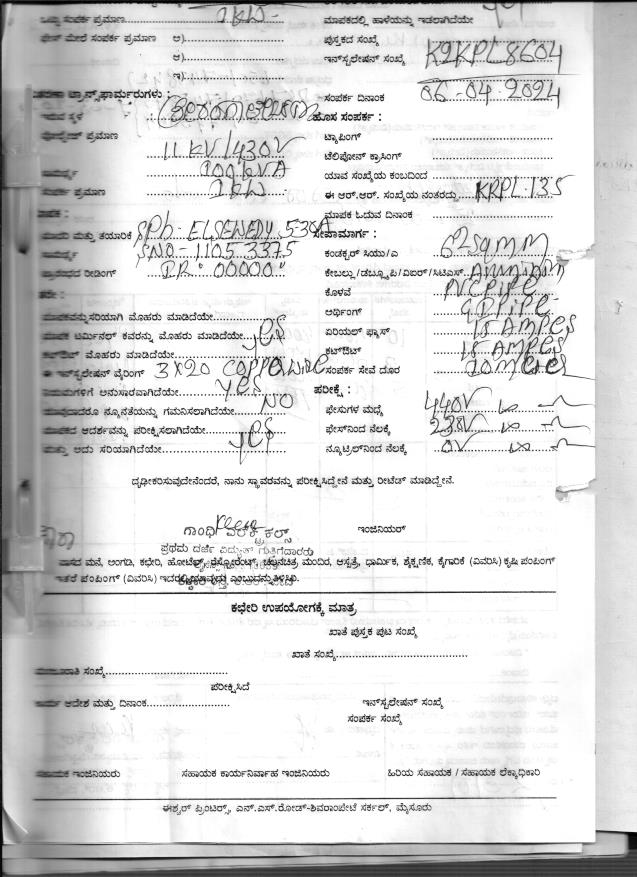 ಒಟ್ಟು ಸಂಪರ್ಕ ಪ್ರಮಾಣ 1KW-
ಮಾಪಕದಲ್ಲಿ ಹಾಳೆಯನ್ನು ಇಡಲಾಗಿದೆಯೇ yes
ಫೇಸ್ ಮೇಲೆ ಸಂಪರ್ಕ ಪ್ರಮಾಣ ಅ)
ಪುಸ್ತಕದ ಸಂಖ್ಯೆ
ಆ) ಇನ್‌ಸ್ಟಲೇಷನ್ ಸಂಖ್ಯೆ K2KPL8604
ಇ)
ಸಂಪರ್ಕ ದಿನಾಂಕ 06-04-2024
ಟ್ರಾನ್ಸ್‌ಫಾರ್ಮರುಗಳು :
ಇರುವ ಸ್ಥಳ :
ಹೊಸ ಸಂಪರ್ಕ :
ವೋಲ್ಟೇಜ್ ಪ್ರಮಾಣ 11 KV/430V
ಟ್ಯಾಪಿಂಗ್
ಟೆಲಿಫೋನ್ ಕ್ರಾಸಿಂಗ್
ಸಾಮರ್ಥ್ಯ 100KVA
ಯಾವ ಸಂಖ್ಯೆಯ ಕಂಬದಿಂದ
ಸಂಪರ್ಕ ಪ್ರಮಾಣ 1KW
ಈ ಆರ್.ಆರ್. ಸಂಖ್ಯೆಯ ನಂತರದ್ದು KRPL-135
ಮಾಪಕ :
ಮಾಪಕ ಓದುವ ದಿನಾಂಕ
ಮಾದರಿ ಮತ್ತು ತಯಾರಿಕೆ SPh- ELSEWEDY 530A
ಸೇವಾಮಾರ್ಗ :
ಸಾಮರ್ಥ್ಯ SNO-11053375
ಕಂಡಕ್ಟರ್ ಸಿಯು/ಎ 6"2sqmm
ಪ್ರಾರಂಭದ ರೀಡಿಂಗ್ I.R: 00000"
ಕೇಬಲ್ಲು/ಡಬ್ಲ್ಯೂಪಿ/ಏಐಆರ್/ಸಿಟಿಎಸ್
ಕೊಳವೆ PVCPIPE
ಇತರೇ :
ಅರ್ಥಿಂಗ್ GIPIPE-
ಮಾಪಕವನ್ನು ಸರಿಯಾಗಿ ಮೊಹರು ಮಾಡಿದೆಯೇ
ಏರಿಯಲ್ ಫ್ಯೂಸ್ 15 AMPES
ಮಾಪಕ ಟರ್ಮಿನಲ್ ಕವರನ್ನು ಮೊಹರು ಮಾಡಿದೆಯೇ yes
ಕಟ್‌ಔಟ್ 15 AMPES
ಕಟ್‌ಔಟ್ ಮೊಹರು ಮಾಡಿದೆಯೇ
ಸಂಪರ್ಕ ಸೇವೆ ದೂರ
ಈ ಇನ್‌ಸ್ಟಲೇಷನ್ ವೈರಿಂಗ್ 3X20 COPPER WIRE
ನಿಯಮಗಳಿಗೆ ಅನುಸಾರವಾಗಿದೆಯೇ yes
ಪರೀಕ್ಷೆ :
ಯಾವುದಾದರೂ ನ್ಯೂನತೆಯನ್ನು ಗಮನಿಸಲಾಗಿದೆಯೇ NO
ಫೇಸುಗಳ ಮಧ್ಯೆ 440V
ಮಾಪಕದ ಆದರ್ಶವನ್ನು ಪರೀಕ್ಷಿಸಲಾಗಿದೆಯೇ
ಫೇಸ್‌ನಿಂದ ನೆಲಕ್ಕೆ 230V
ಮತ್ತು ಅದು ಸರಿಯಾಗಿದೆಯೇ yes
ನ್ಯೂಟ್ರಲ್‌ನಿಂದ ನೆಲಕ್ಕೆ 0V
ದೃಢೀಕರಿಸುವುದೇನೆಂದರೆ, ನಾನು ಸ್ಥಾವರವನ್ನು ಪರೀಕ್ಷಿಸಿದ್ದೇನೆ ಮತ್ತು ರೀಟೆಡ್ ಮಾಡಿದ್ದೇನೆ.
ಗಾಂಧಿ ಎಲೆಕ್ಟ್ರಿಕಲ್ಸ್
ಇಂಜಿನಿಯರ್
ಪ್ರಥಮ ದರ್ಜೆ ವಿದ್ಯುತ್ ಗುತ್ತಿಗೆದಾರರು
ವಾಸದ ಮನೆ, ಅಂಗಡಿ, ಕಛೇರಿ, ಹೋಟೆಲ್, ರೆಸ್ಟೋರೆಂಟ್, ಚಲನಚಿತ್ರ ಮಂದಿರ, ಆಸ್ಪತ್ರೆ, ಧಾರ್ಮಿಕ, ಶೈಕ್ಷಣಿಕ, ಕೈಗಾರಿಕೆ (ವಿವರಿಸಿ) ಕೃಷಿ ಪಂಪಿಂಗ್
ಇತರೆ ಪಂಪಿಂಗ್ (ವಿವರಿಸಿ) ಇದರಲ್ಲಿ ಯಾವುದು ಎಂಬುದನ್ನು ತಿಳಿಸಿ.
ಕಛೇರಿ ಉಪಯೋಗಕ್ಕೆ ಮಾತ್ರ
ಖಾತೆ ಪುಸ್ತಕ ಪುಟ ಸಂಖ್ಯೆ
ಖಾತೆ ಸಂಖ್ಯೆ
ಮಂಜೂರಾತಿ ಸಂಖ್ಯೆ
ಪರೀಕ್ಷಿಸಿದೆ
ಕಾರ್ಯ ಆದೇಶ ಮತ್ತು ದಿನಾಂಕ
ಇನ್‌ಸ್ಟಲೇಷನ್ ಸಂಖ್ಯೆ
ಸಂಪರ್ಕ ಸಂಖ್ಯೆ
ಸಹಾಯಕ ಇಂಜಿನಿಯರು ಸಹಾಯಕ ಕಾರ್ಯನಿರ್ವಾಹ ಇಂಜಿನಿಯರು ಹಿರಿಯ ಸಹಾಯಕ / ಸಹಾಯಕ ಲೆಕ್ಕಾಧಿಕಾರಿ
ಈಶ್ವರ್ ಪ್ರಿಂಟರ್ಸ್, ಎನ್.ಎಸ್.ರೋಡ್-ಶಿವರಾಂಪೇಟೆ ಸರ್ಕಲ್, ಮೈಸೂರು